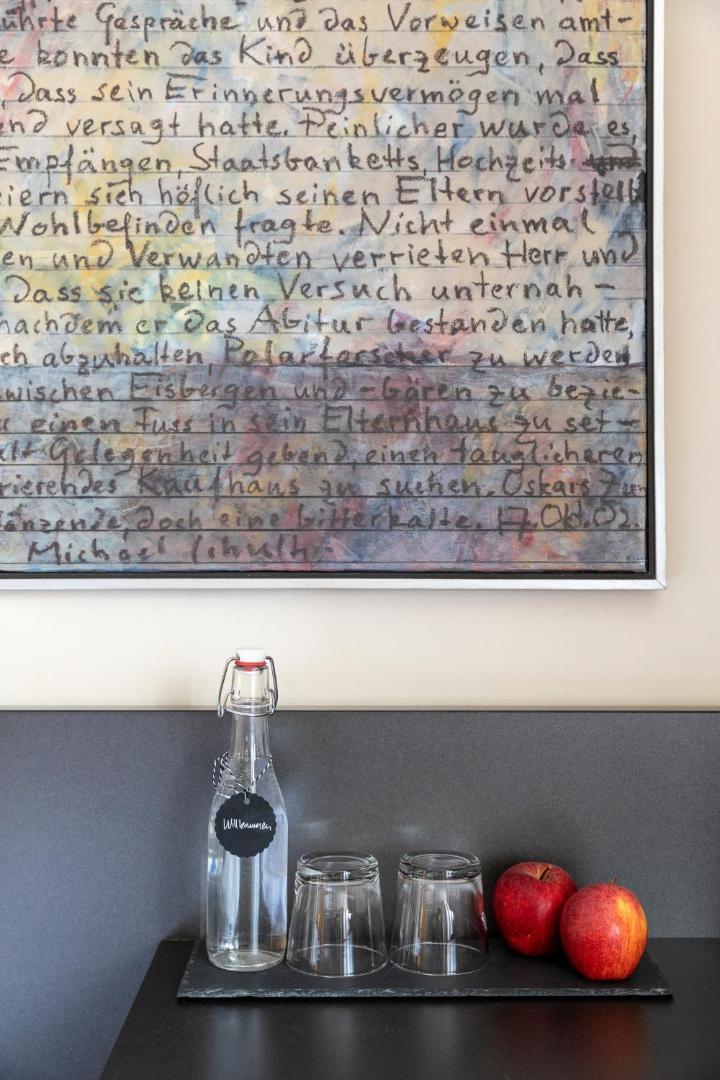 ührte Gespräche und das Vorweisen amt-
e konnten das Kind überzeugen, dass
, dass sein Erinnerungsvermögen mal
end versagt hatte. Peinlicher wurde es,
Empfängen, Staatsbanketts, Hochzeits-
eiern sich höflich seinen Eltern vorstellt
Wohlbefinden fragte. Nicht einmal
en und Verwandten verrieten Herr und
dass sie keinen Versuch unternah-
nachdem er das Abitur bestanden hatte,
ch abzuhalten, Polarforscher zu werden
wischen Eisbergen und -bären zu bezie-
einen Fuss in sein Elternhaus zu set-
alt Gelegenheit gebend, einen tauglicheren
rierendes Kaufhaus zu suchen. Oskars Zu
länzende, doch eine bitterkalte. 17. Okt. 02.
Michael
Willkommen